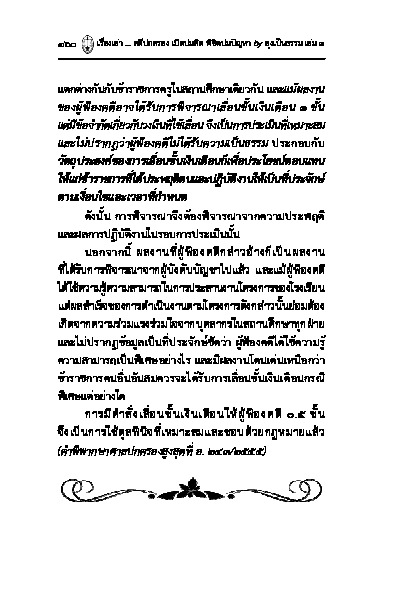 ๑๒๐ เรื่องเล่า ... คดีปกครอง เปิดปมคิด พิชิตปมปัญหา by ลุงเป็นธรรม เล่ม ๓
แตกต่างกันกับข้าราชการครูในสถานศึกษาเดียวกัน และแม้ผลงาน
ของผู้ฟ้องคดีอาจได้รับการพิจารณาเลื่อนขั้นเงินเดือน ๑ ขั้น
แต่มีข้อจำกัดเกี่ยวกับวงเงินที่ใช้เลื่อน จึงเป็นการประเมินที่เหมาะสม
และไม่ปรากฏว่าผู้ฟ้องคดีไม่ได้รับความเป็นธรรม ประกอบกับ
วัตถุประสงค์ของการเลื่อนขั้นเงินเดือนก็เพื่อประโยชน์ตอบแทน
ให้แก่ข้าราชการที่ได้ประพฤติตนและปฏิบัติงานให้เป็นที่ประจักษ์
ตามเงื่อนไขและเวลาที่กำหนด
ดังนั้น การพิจารณาจึงต้องพิจารณาจากความประพฤติ
และผลการปฏิบัติงานในรอบการประเมินนั้น
นอกจากนี้ ผลงานที่ผู้ฟ้องคดีกล่าวอ้างก็เป็นผลงาน
ที่ได้รับการพิจารณาจากผู้บังคับบัญชาไปแล้ว และแม้ผู้ฟ้องคดี
ได้ใช้ความรู้ความสามารถในการประสานงานโครงการของโรงเรียน
แต่ผลสำเร็จของการดำเนินงานตามโครงการดังกล่าวนั้นย่อมต้อง
เกิดจากความร่วมแรงร่วมใจจากบุคลากรในสถานศึกษาทุกฝ่าย
และไม่ปรากฏข้อมูลเป็นที่ประจักษ์ชัดว่า ผู้ฟ้องคดีได้ใช้ความรู้
ความสามารถเป็นพิเศษอย่างไร และมีผลงานโดดเด่นเหนือกว่า
ข้าราชการคนอื่นอันสมควรจะได้รับการเลื่อนขั้นเงินเดือนกรณี
พิเศษแต่อย่างใด
การมีคำสั่งเลื่อนขั้นเงินเดือนให้ผู้ฟ้องคดี ๐.๕ ขั้น
จึงเป็นการใช้ดุลพินิจที่เหมาะสมและชอบด้วยกฎหมายแล้ว
(คำพิพากษาศาลปกครองสูงสุดที่ อ. ๒๔๗/๒๕๕๕)